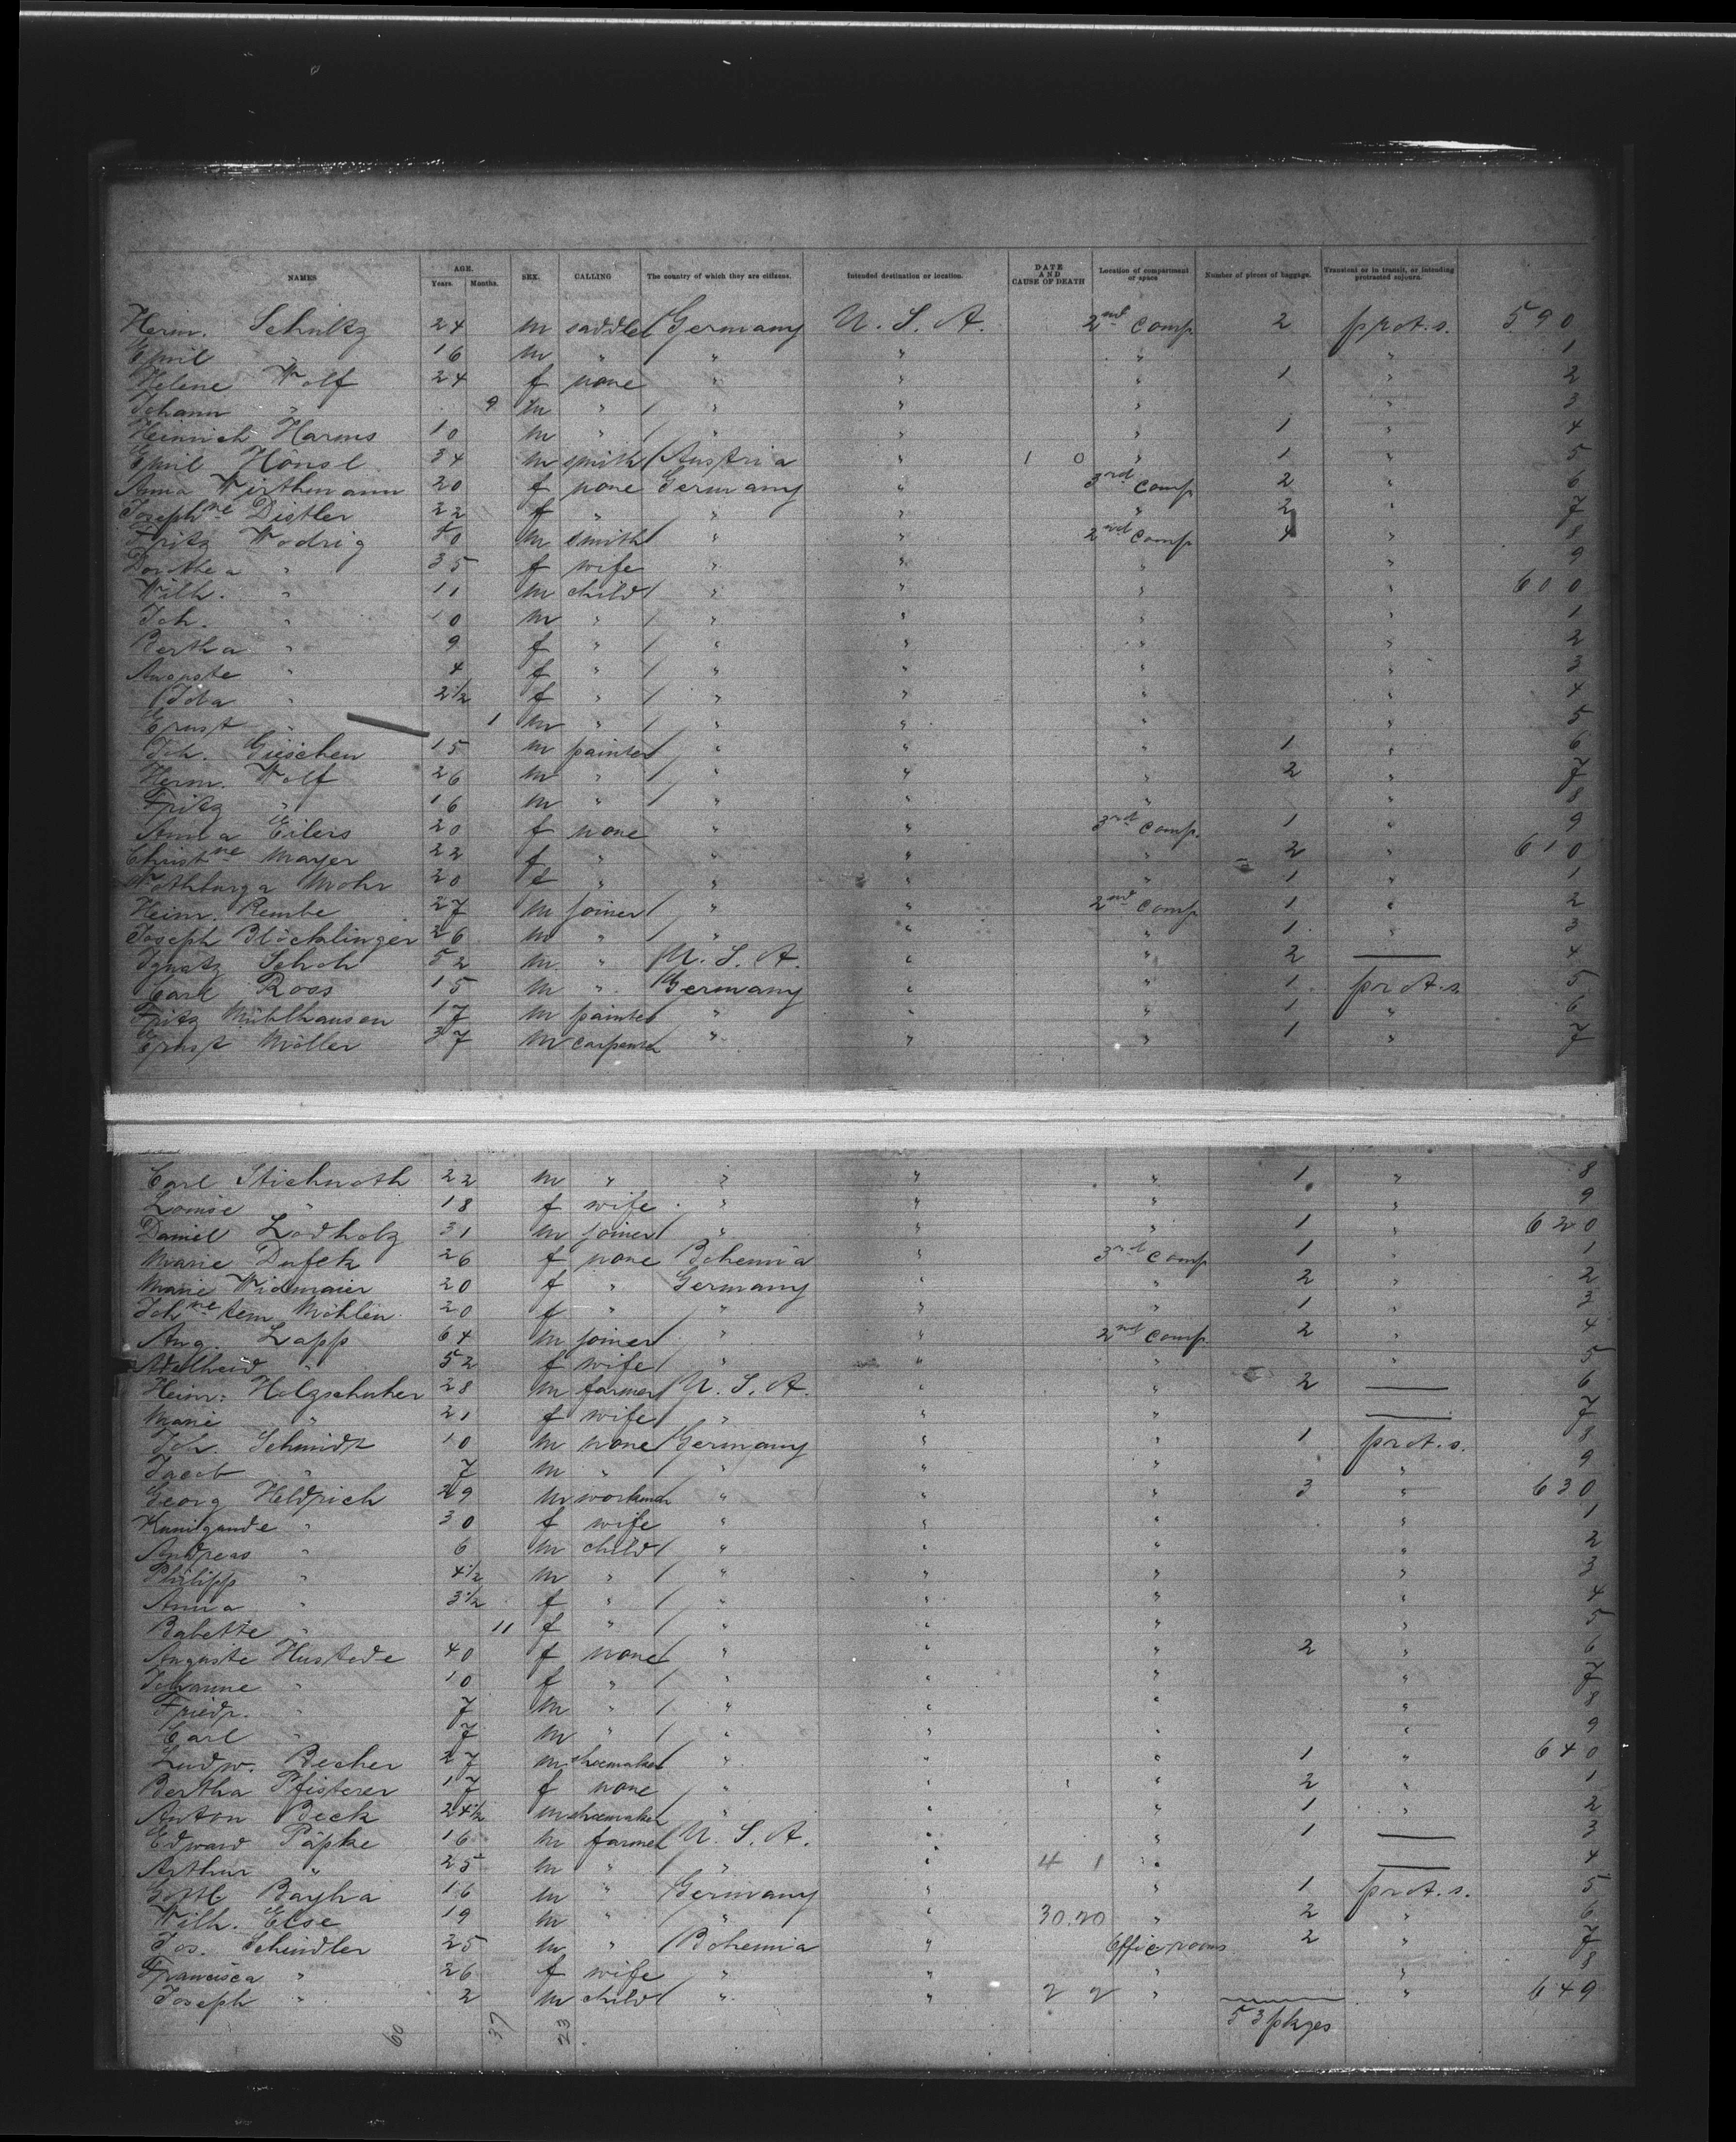 NAMES AGE. Years. Months. SEX. CALLING The country of which they are citizens. Intended destination or location. DATE AND CAUSE OF DEATH Location of compartment or space Number of pieces of baggage. Transient or in transit, or intending protracted sojourn.
Herm. Schultz 24 m saddler Germany U. S. A. 2nd Comp. 2 prot. s. 590
Emil " 16 m " " " " " 1
Helene Wolf 24 f none " " " 1 " 2
Johann " 9 m " " " " " 3
Heinrich Harms 10 m " " " " 1 " 4
Emil Hönsl 34 m smith Austria " 1 0 " 1 " 5
Anna Wirthmann 20 f none Germany " 3rd Comp 2 " 6
Josephne Distler 22 f " " " " 2 " 7
Fritz Wodrig 40 m smith " " 2nd Comp 4 " 8
Dorothea " 35 f wife " " " " 9
Wilh. " 11 m child " " " " 600
Joh. " 10 m " " " " " 1
Bertha " 9 f " " " " " 2
Auguste " 4 f " " " " " 3
Ida " 2 1/2 f " " " " " 4
Ernst " 1 m " " " " " 5
Joh. Gieschen 15 m painter " " " 1 " 6
Herm. Wolf 26 m " " " " 2 " 7
Fritz " 16 m " " " " " 8
Anna Eilers 20 f none " " 3rd Comp. 1 " 9
Christne Mayer 22 f " " " " 2 " 610
Wothburga Mohr 20 f " " " " 1 " 1
Heinr. Rembe 27 m joiner " " 2nd Comp 1 " 2
Joseph Blöcklinger 26 m " " " " 1 " 3
Ignatz Schoh 52 m " U. S. A. " " 2 — 4
Carl Ross 15 m " Germany " " 1 prot. s. 5
Fritz Mühlhausen 17 m painter " " " 1 " 6
Ernst Möller 37 m carpenter " " " 1 " 7
Carl Stichnoth 22 m " " " " 1 " 8
Louise " 18 f wife " " " " 9
Daniel Lodholz 31 m joiner " " " 1 " 620
Marie Dufek 26 f none Bohemia " 3rd Comp 1 " 1
Marie Widmaier 20 f " Germany " " 2 " 2
Johne tem Möhlen 20 f " " " " 1 " 3
Aug. Lapp 64 m joiner " " 2nd Comp. 2 " 4
Adelheid " 52 f wife " " " " 5
Heinr. Holzschuher 28 m farmer U. S. A. " " 2 — 6
Marie " 21 f wife " " " — 7
Joh. Schmidt 10 m none Germany " " 1 prot. s. 8
Jacob " 7 m " " " " " 9
Georg Heldrich 29 m workman " " " 3 " 630
Kunigunde " 30 f wife " " " " 1
Andreas " 6 m child " " " " 2
Philipp " 4 1/2 m " " " " " 3
Anna " 3 1/2 f " " " " " 4
Babette " 11 f " " " " " 5
Auguste Hustede 40 f none " " " 2 " 6
Johanne " 10 f " " " " " 7
Friedr. " 7 m " " " " " 8
Carl " 7 m " " " " " 9
Ludw. Becher 27 m shoemaker " " " 1 " 640
Bertha Pfisterer 17 f none " " " 2 " 1
Anton Beck 24 1/2 m shoemaker " " " 1 " 2
Edward Päpke 16 m farmer U. S. A. " " 1 — 3
Arthur " 25 m " " " 4 1 " — 4
Gottl Bayha 16 m " Germany " " 1 prot. s. 5
Wilh. Else 19 m " " " 30.20 " 2 " 6
Jos. Schindler 25 m " Bohemia " Offic rooms 2 " 7
Francisca " 26 f wife " " " " 8
Joseph " 2 m child " " 2 2 " " 649
60 37 23 53 pkges